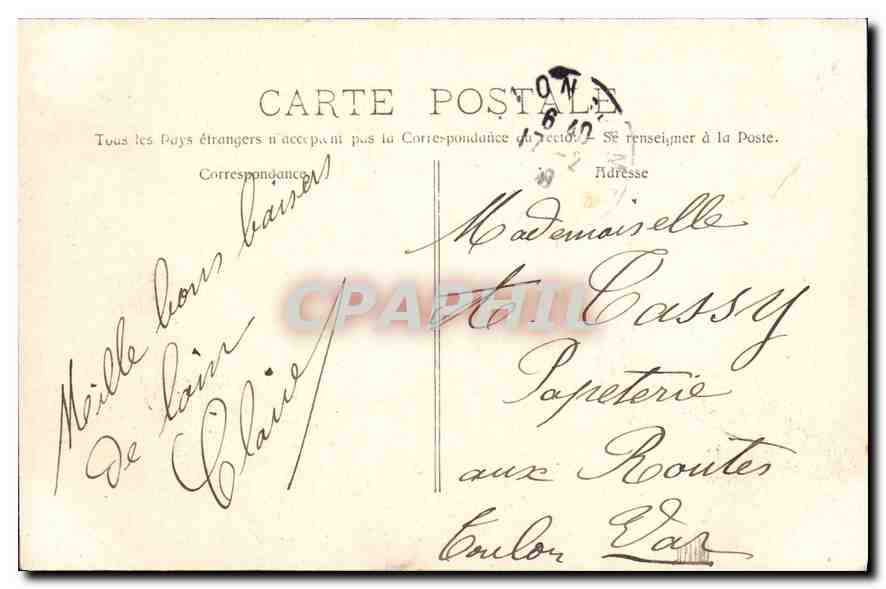 CARTE POSTALE
Tous les Pays étrangers n'acceptent pas la Correspondance au recto. - Se renseigner à la Poste.
Correspondance
Adresse
Mille bons baisers
de loin
Claire
Mademoiselle
A. Cassy
Papeterie
aux Routes
Toulon Var
CPAPHIL